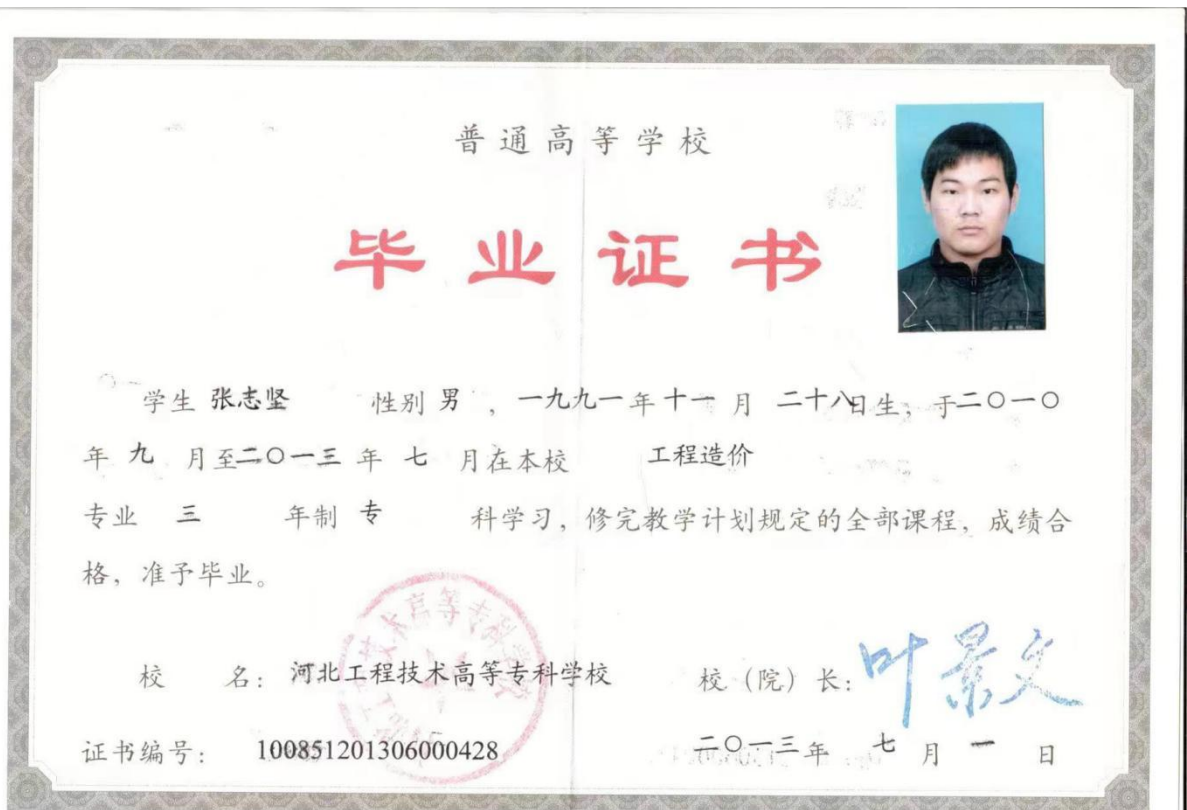 普通高等学校
毕业证书
学生 张志坚 性别 男 ，一九九一年十一月 二十八日生，于二〇一〇
年 九 月至二〇一三 年 七 月在本校 工程造价
专业 三 年制 专 科学习，修完教学计划规定的全部课程，成绩合
格，准予毕业。
校 名： 河北工程技术高等专科学校 校（院）长：叶景文
证书编号： 100851201306000428 二〇一三年 七 月 一 日